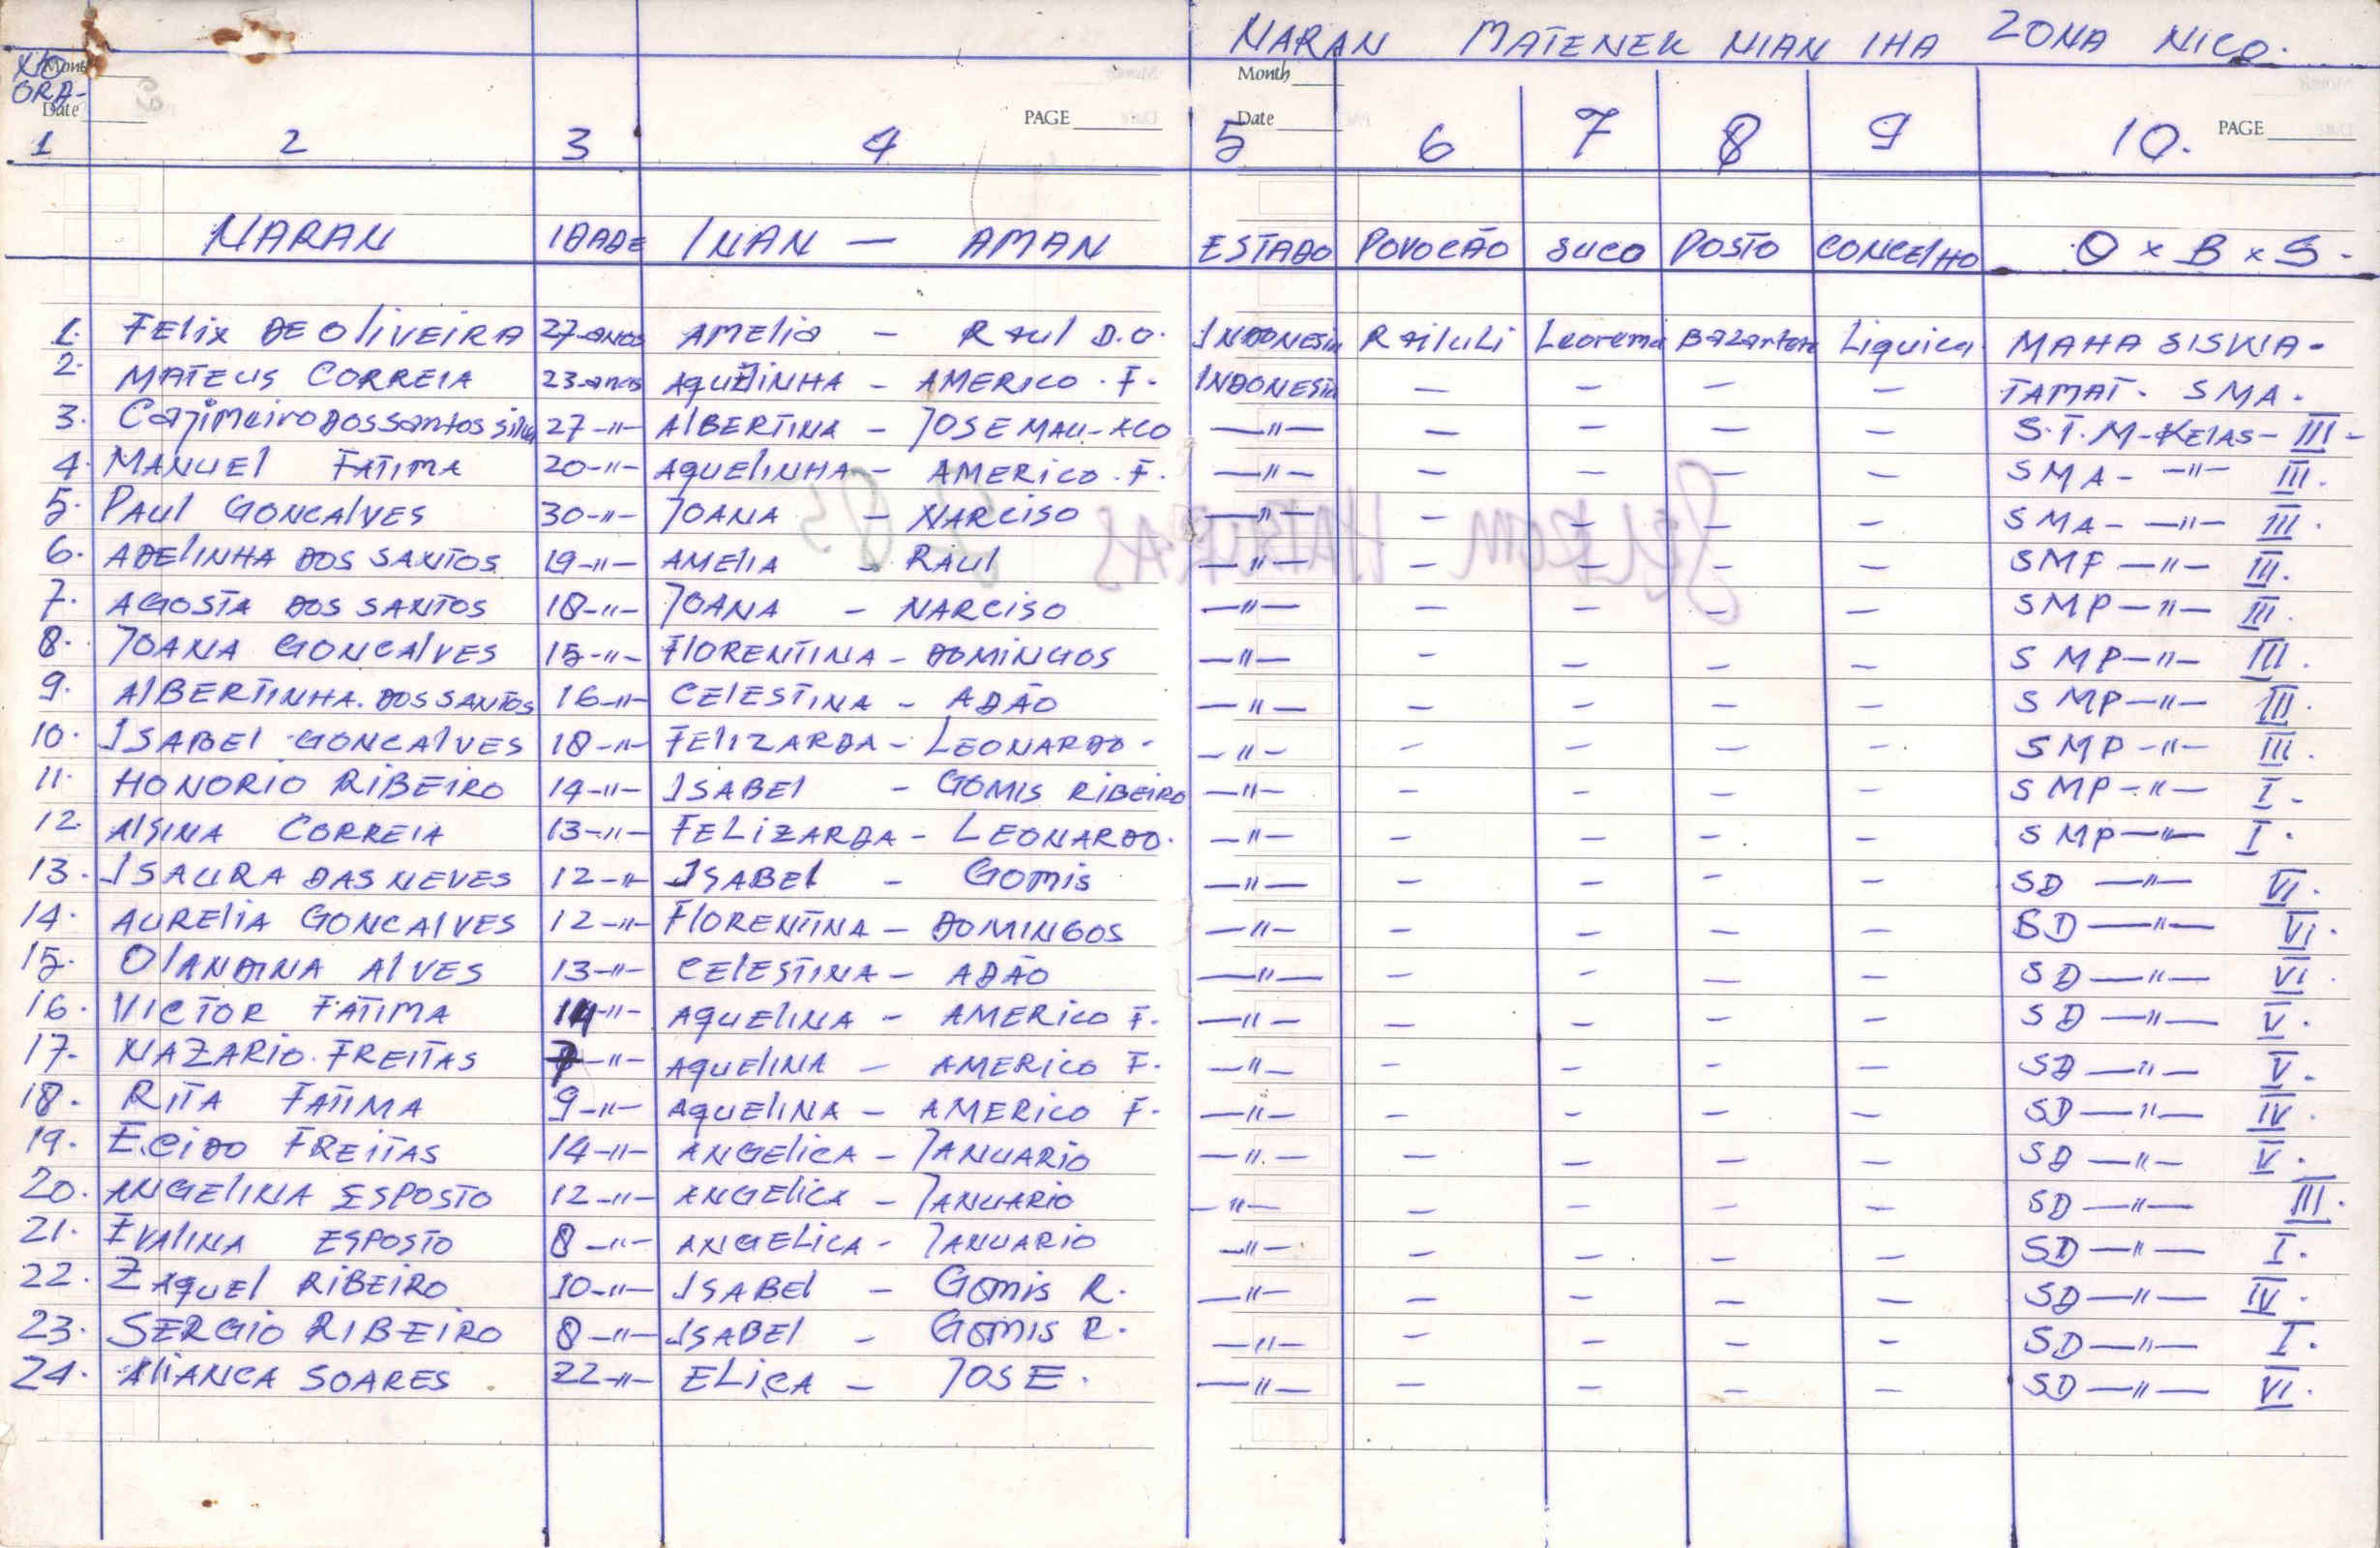 NARAN MATENEK NIAN IHA ZONA NICO.
Month Month
ORA-
Date PAGE Date PAGE
1 2 3 4 5 6 7 8 9 10.
NARAN IDADE INAN — AMAN ESTADO POVOCÃO SUCO POSTO CONCELHO O x B x S -
1. FELIX DE OLIVEIRA 27 anos AMELIA - RAUL D.O. INDONESIA Railuli Leorema Bazartete Liquica MAHA SISWA -
2. MATEUS CORREIA 23 anos AQUELINHA - AMERICO . F. INDONESIA — — — — TAMAT . SMA .
3. Cazimeiro dos santos silva 27 -"- ALBERTINA - JOSE MAU-ACO —"— — — — — S.T.M-KELAS- III -
4. MANUEL FATIMA 20 -"- AQUELINHA - AMERICO . F. —"— — — — — SMA - —"— III.
5. PAUL GONCALVES 30 -"- JOANA - NARCISO —"— — — — — SMA - —"— III.
6. ADELINHA DOS SANTOS 19 -"- AMELIA - RAUL —"— — — — — SMP —"— III.
7. AGOSTA DOS SANTOS 18 -"- JOANA - NARCISO —"— — — — — SMP —"— III.
8. JOANA GONCALVES 15 -"- FLORENTINA - DOMINGOS —"— — — — — SMP —"— III.
9. ALBERTINHA. DOS SANTOS 16 -"- CELESTINA - ADÃO —"— — — — — SMP —"— III.
10. ISABEL GONCALVES 18 -"- FELIZARDA - LEONARDO - —"— — — — — SMP —"— III.
11. HONORIO RIBEIRO 14 -"- ISABEL - GOMIS RIBEIRO —"— — — — — SMP —"— I -
12. ALSINA CORREIA 13 -"- FELIZARDA - LEONARDO. —"— — — — — SMP —"— I .
13. ISAURA DAS NEVES 12 -"- ISABEL - GOMIS —"— — — — — SD —"— VI.
14. AURELIA GONCALVES 12 -"- FLORENTINA - DOMINGOS —"— — — — — SD —"— VI.
15. OLANDINA ALVES 13 -"- CELESTINA - ADÃO —"— — — — — SD —"— VI.
16. VICTOR FATIMA 14 -"- AQUELINA - AMERICO F. —"— — — — — SD —"— V.
17. NAZARIO. FREITAS 7 -"- AQUELINA - AMERICO F. —"— — — — — SD —"— V.
18. RITA FATIMA 9 -"- AQUELINA - AMERICO F. —"— — — — — SD —"— IV.
19. ECIDO FREITAS 14 -"- ANGELICA - JANUARIO —"— — — — — SD —"— V.
20. ANGELINA ESPOSTO 12 -"- ANGELICA - JANUARIO —"— — — — — SD —"— III.
21. EVALINA ESPOSTO 8 -"- ANGELICA - JANUARIO —"— — — — — SD —"— I.
22. ZAQUEL RIBEIRO 10 -"- ISABEL - GOMIS R. —"— — — — — SD —"— IV.
23. SERGIO RIBEIRO 8 -"- ISABEL - GOMIS R. —"— — — — — SD —"— I.
24. ALIANCA SOARES 22 -"- ELICA - JOSE. —"— — — — — SD —"— VI.